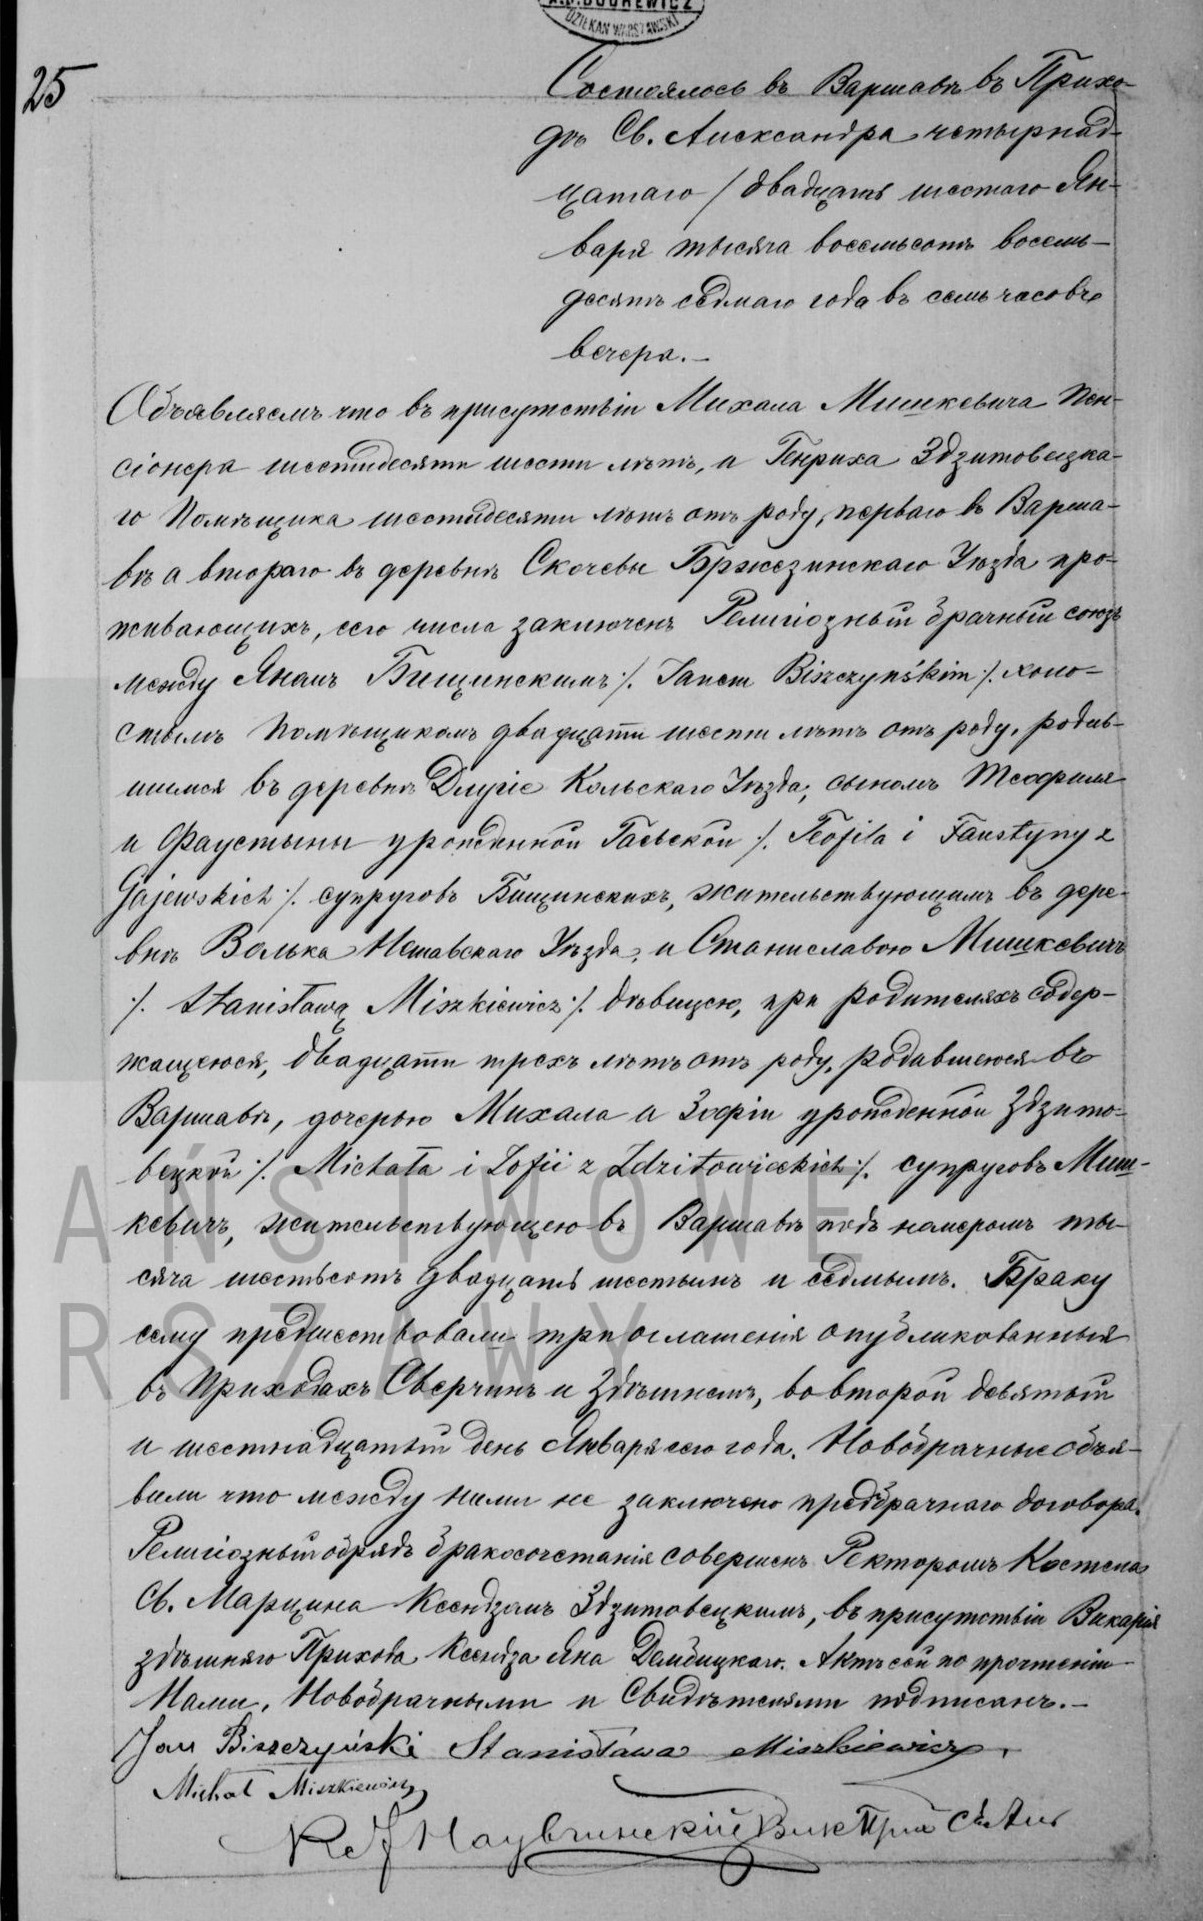 A.P. BOGREWICZ
DZIEKAN WARSZAWSKI
25
Состоялось въ Варшавѣ въ Прихо-
дѣ Св. Александра четырнад-
цатаго / двадцать шестаго Ян-
варя тысяча восемьсотъ восемь-
десятъ седмаго года въ семь часовъ
вечера.-
Объявляемъ что въ присутствіи Михала Мишкевича Пен-
сіонера шестидесяти шести лѣтъ, и Генриха Здзитовецка-
го Помѣщика шестидесяти лѣтъ отъ роду, перваго въ Варша-
вѣ а втораго въ деревнѣ Скочевы Бржезинскаго Уѣзда про-
живающихъ, сего числа заключенъ Религіозный брачный союзъ
между Яномъ Бищинскимъ /. Janem Biszczyńskim /. холо-
стымъ Помѣщикомъ двадцати шести лѣтъ отъ роду, родив-
шимся въ деревнѣ Длугіе Кольскаго Уѣзда, сыномъ Теофиля
и Фаустыны урожденной Гаевской /. Teofila i Faustyny z
Gajewskich /. супруговъ Бищинскихъ, жительствующимъ въ дере-
внѣ Волька Нешавскаго Уѣзда, и Станиславою Мишкевичъ
/. Stanisławą Miszkiewicz /. дѣвицею, при родителяхъ содер-
жащеюся, двадцати трехъ лѣтъ отъ роду, родившеюся въ
Варшавѣ, дочерью Михала и Зофіи урожденной Здзито-
вецкой /. Michała i Zofii z Zdzitowieckich /. супруговъ Миш-
кевичъ, жительствующею въ Варшавѣ подъ номеромъ ты-
сяча шестьсотъ двадцать шестымъ и седмымъ. Браку
сему предшествовали три оглашенія опубликованныя
въ Приходахъ Сверчинъ и Здѣшнемъ, во второй девятый
и шестнадцатый день Января сего года. Новобрачные объя-
вили что между ними не заключено предбрачнаго договора.
Религіозный обрядъ бракосочетанія совершенъ Ректоромъ Костела
Св. Марцина Ксендзомъ Здзитовецкимъ, въ присутствіи Викарія
здѣшняго Прихода Ксендза Яна Дембицкаго. Актъ сей по прочтеніи
Нами, Новобрачными и Свидѣтелями подписанъ.-
Jan Biszczyński Stanisława Miszkiewicz
Michał Miszkiewicz
Вик Прих Св Ал
AŃSTWOWE
RSZAWY